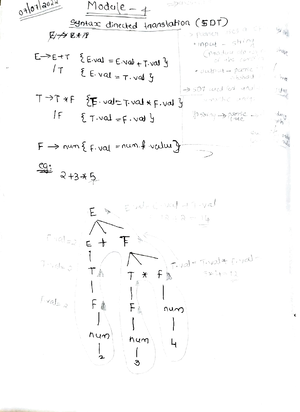 Module - 4
07/07/2022
Syntax directed translation (SDT)
E → E+T {E.val = E.val + T.val}
/T {E.val = T.val}
T → T * F {T.val = T.val * F.val}
/F {T.val = F.val}
F → num {F.val = num.f value}
eg:
2+3*5
E
E + T
T T * F
F F num
num num 4
2 3